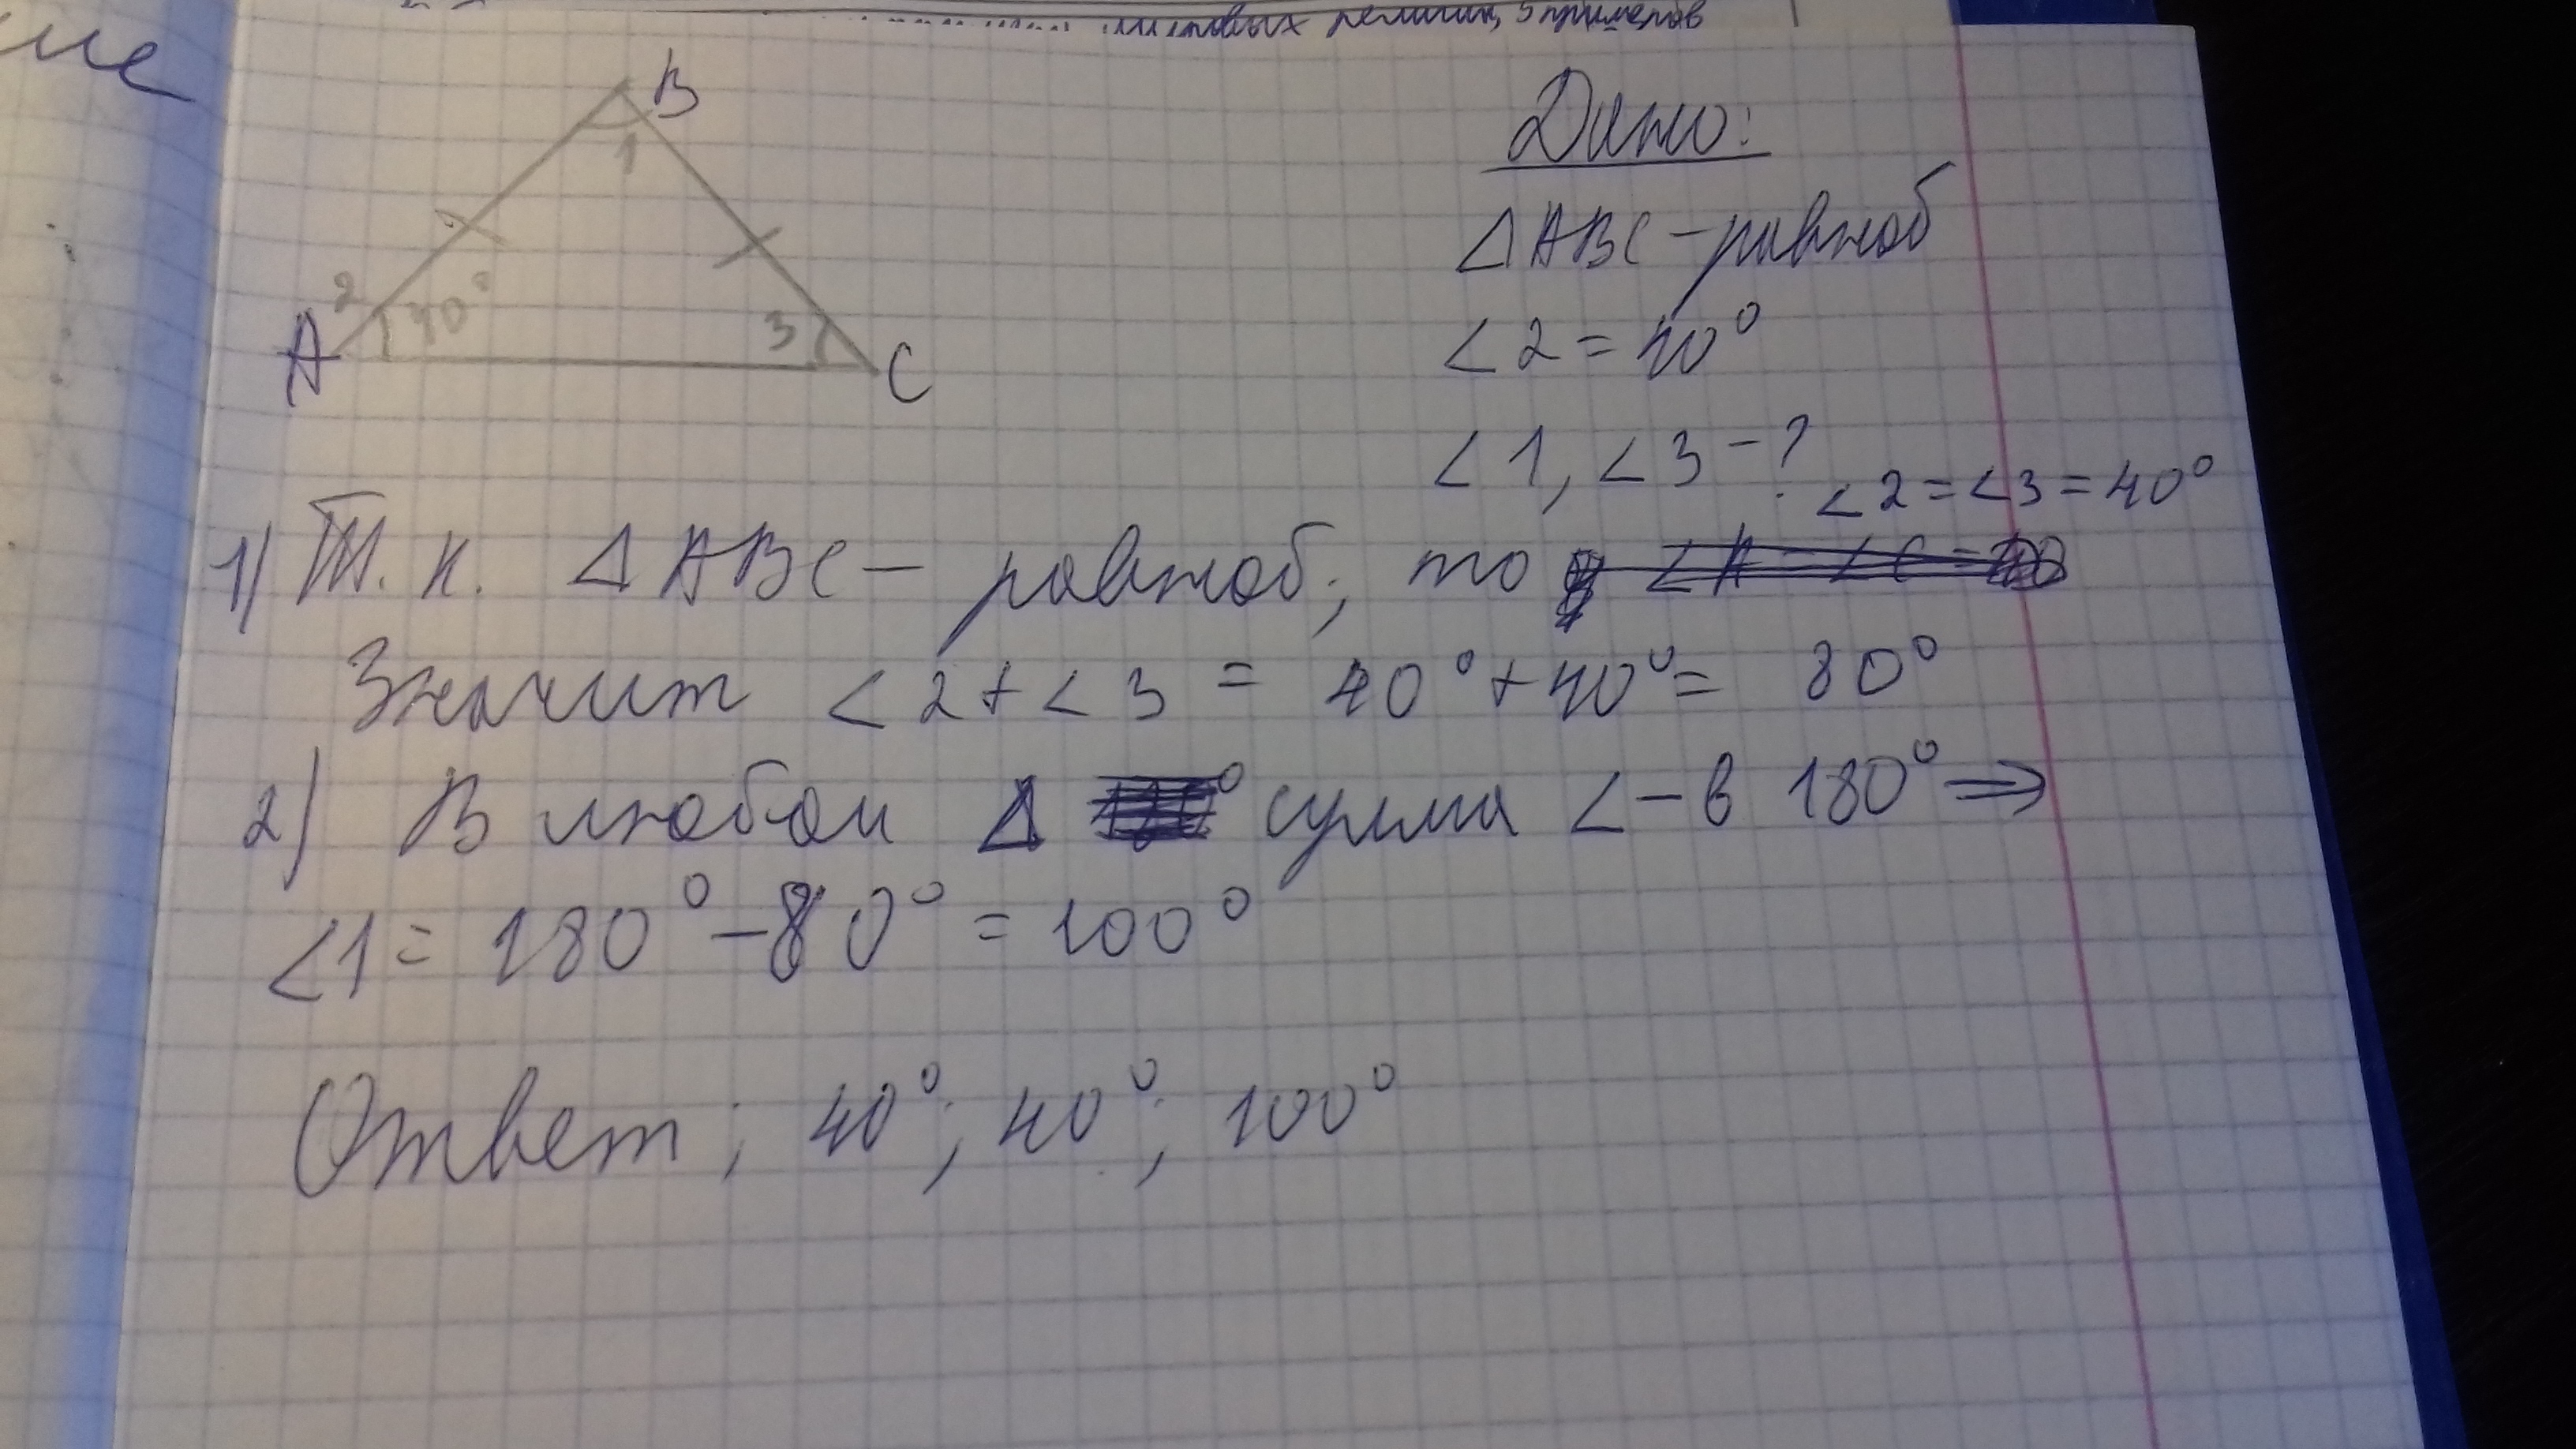 мировых религии, 5 примеров
ие
B
1
2
40°
3
A
C
Дано:
△ABC - равноб
∠2 = 40°
∠1, ∠3 - ?
∠2 = ∠3 = 40°
1) Т. к. △ABC - равноб; то
Значит ∠2 + ∠3 = 40° + 40° = 80°
2) В любом △ сумма ∠-в 180° ⇒
∠1 = 180° - 80° = 100°
Ответ; 40°; 40°; 100°